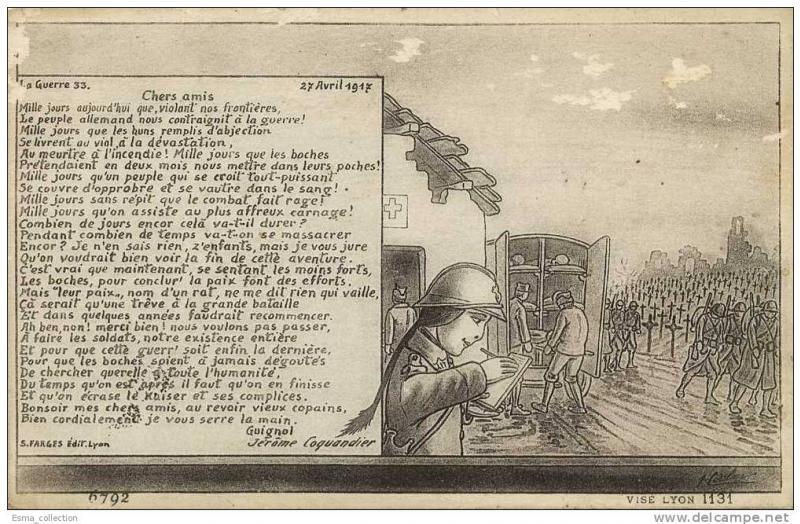 La Guerre 33.
27 Avril 1917
Chers amis
Mille jours aujourd'hui que, violant nos frontières,
Le peuple allemand nous contraignit à la guerre!
Mille jours que les huns remplis d'abjection
Se livrent au viol, à la dévastation,
Au meurtre à l'incendie! Mille jours que les boches
Prétendaient en deux mois nous mettre dans leurs poches!
Mille jours qu'un peuple qui se croit tout-puissant
Se couvre d'opprobre et se vautre dans le sang!
Mille jours sans répit que le combat fait rage!
Mille jours qu'on assiste au plus affreux carnage!
Combien de jours encor celà va-t-il durer?
Pendant combien de temps va-t-on se massacrer
Encor? Je n'en sais rien, z'enfants, mais je vous jure
Qu'on voudrait bien voir la fin de cette aventure.
C'est vrai que maintenant, se sentant les moins forts,
Les boches, pour conclur' la paix font des efforts.
Mais "leur paix", nom d'un rat, ne me dit rien qui vaille,
Çà serait qu'une trêve à la grande bataille
Et dans quelques années faudrait recommencer.
Ah ben, non! merci bien! nous voulons pas passer,
A faire les soldats, notre existence entière
Et pour que cette guerr' soit enfin la dernière,
Pour que les boches soient à jamais dégoutés
De chercher querelle à toute l'humanité,
Du temps qu'on est après il faut qu'on en finisse
Et qu'on écrase le Kaiser et ses complices.
Bonsoir mes chers amis, au revoir vieux copains,
Bien cordialement je vous serre la main.
Guignol
S. FARGES Édit. Lyon
Jérôme Coquandier
6792
VISÉ LYON 1131
Esma_collection
delcampe.net